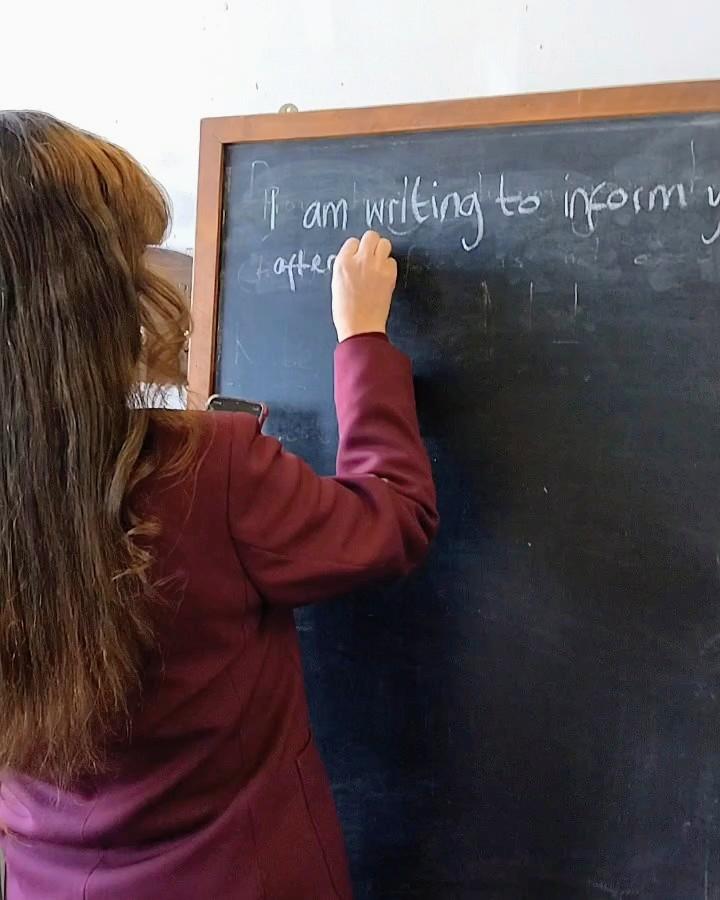 I am writing to inform y
after